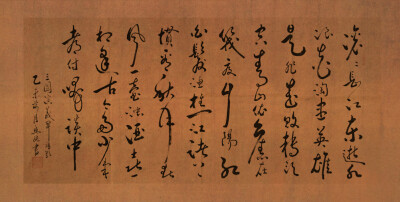 滚滚長江東逝水
浪花淘盡英雄
是非成敗轉頭
空青山依舊在
幾度夕陽紅
白髮漁樵江渚上
慣看秋月春
風一壺濁酒喜
相逢古今多少事
都付笑談中
三國演義
乙未